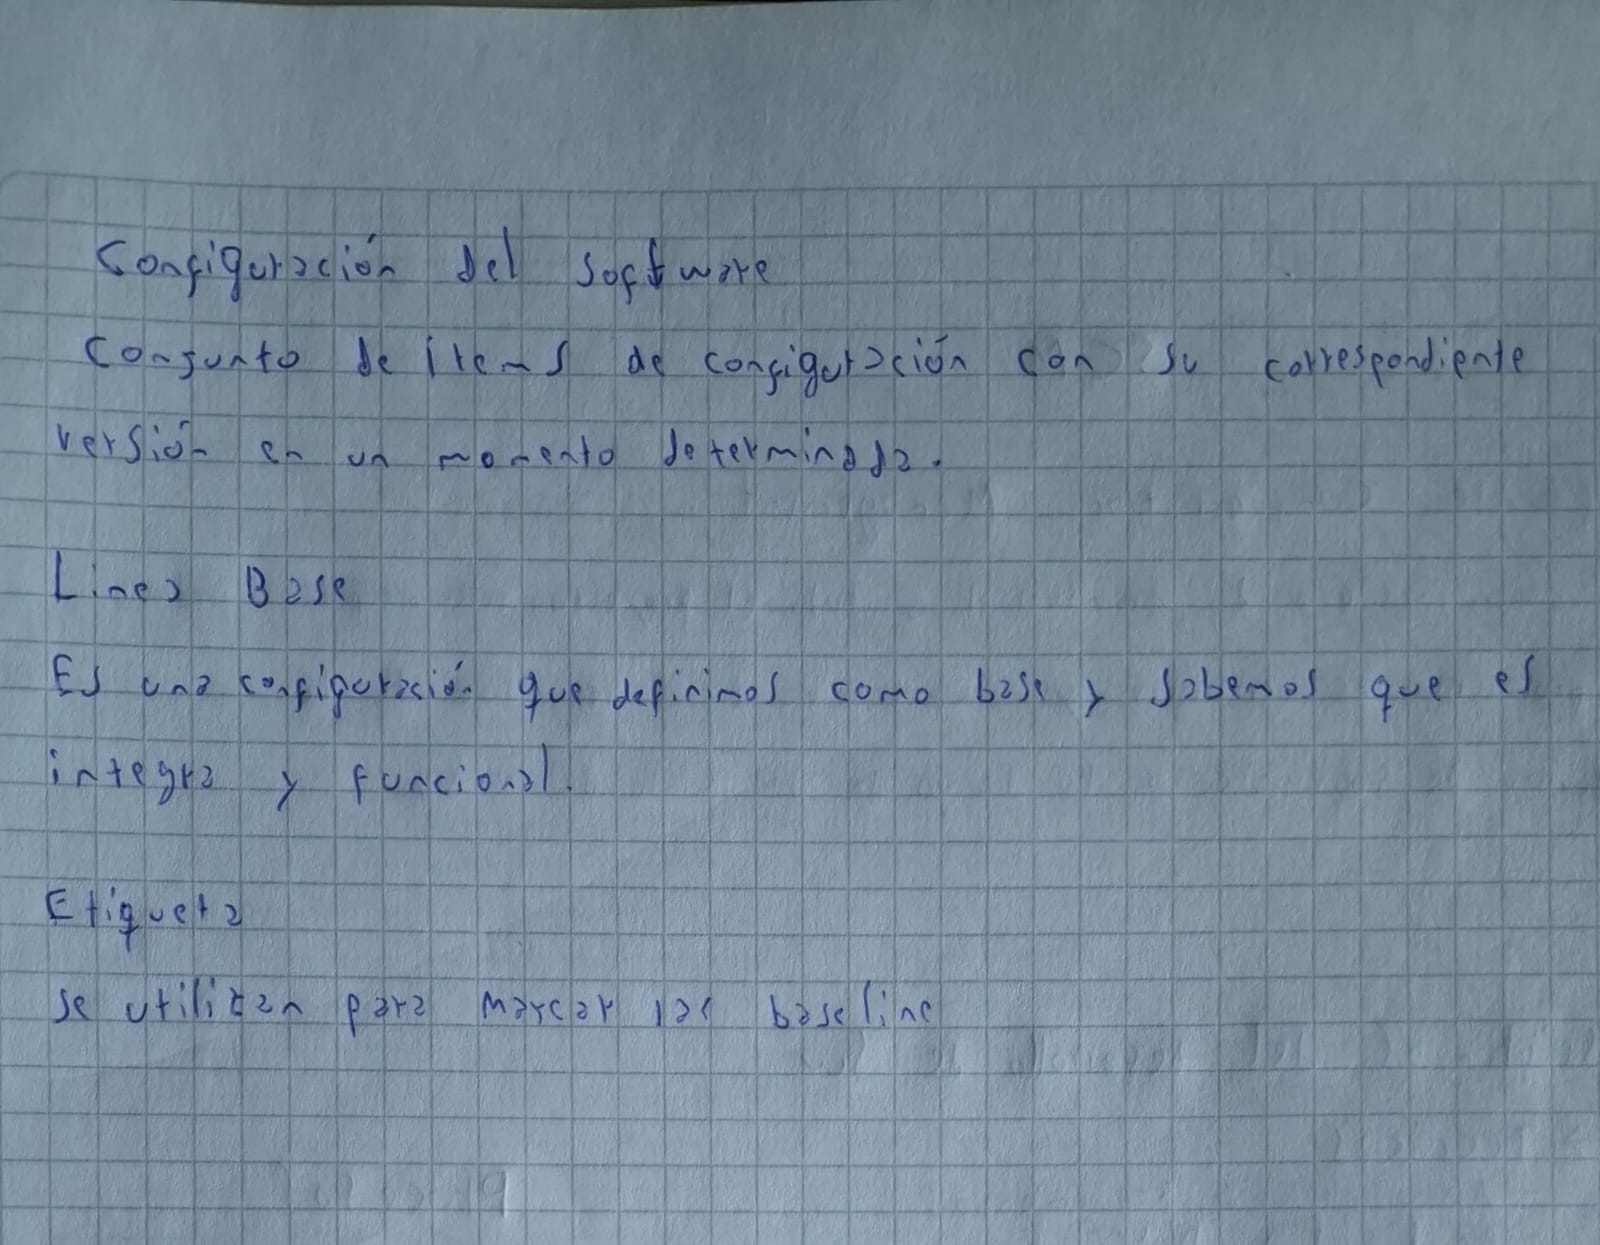 Configuración del software
Conjunto de ítems de configuración con su correspondiente
versión en un momento determinada.
Linea Base
Es una configuración que definimos como base y sabemos que es
integra y funcional.
Etiqueta
se utilizan para marcar las baseline